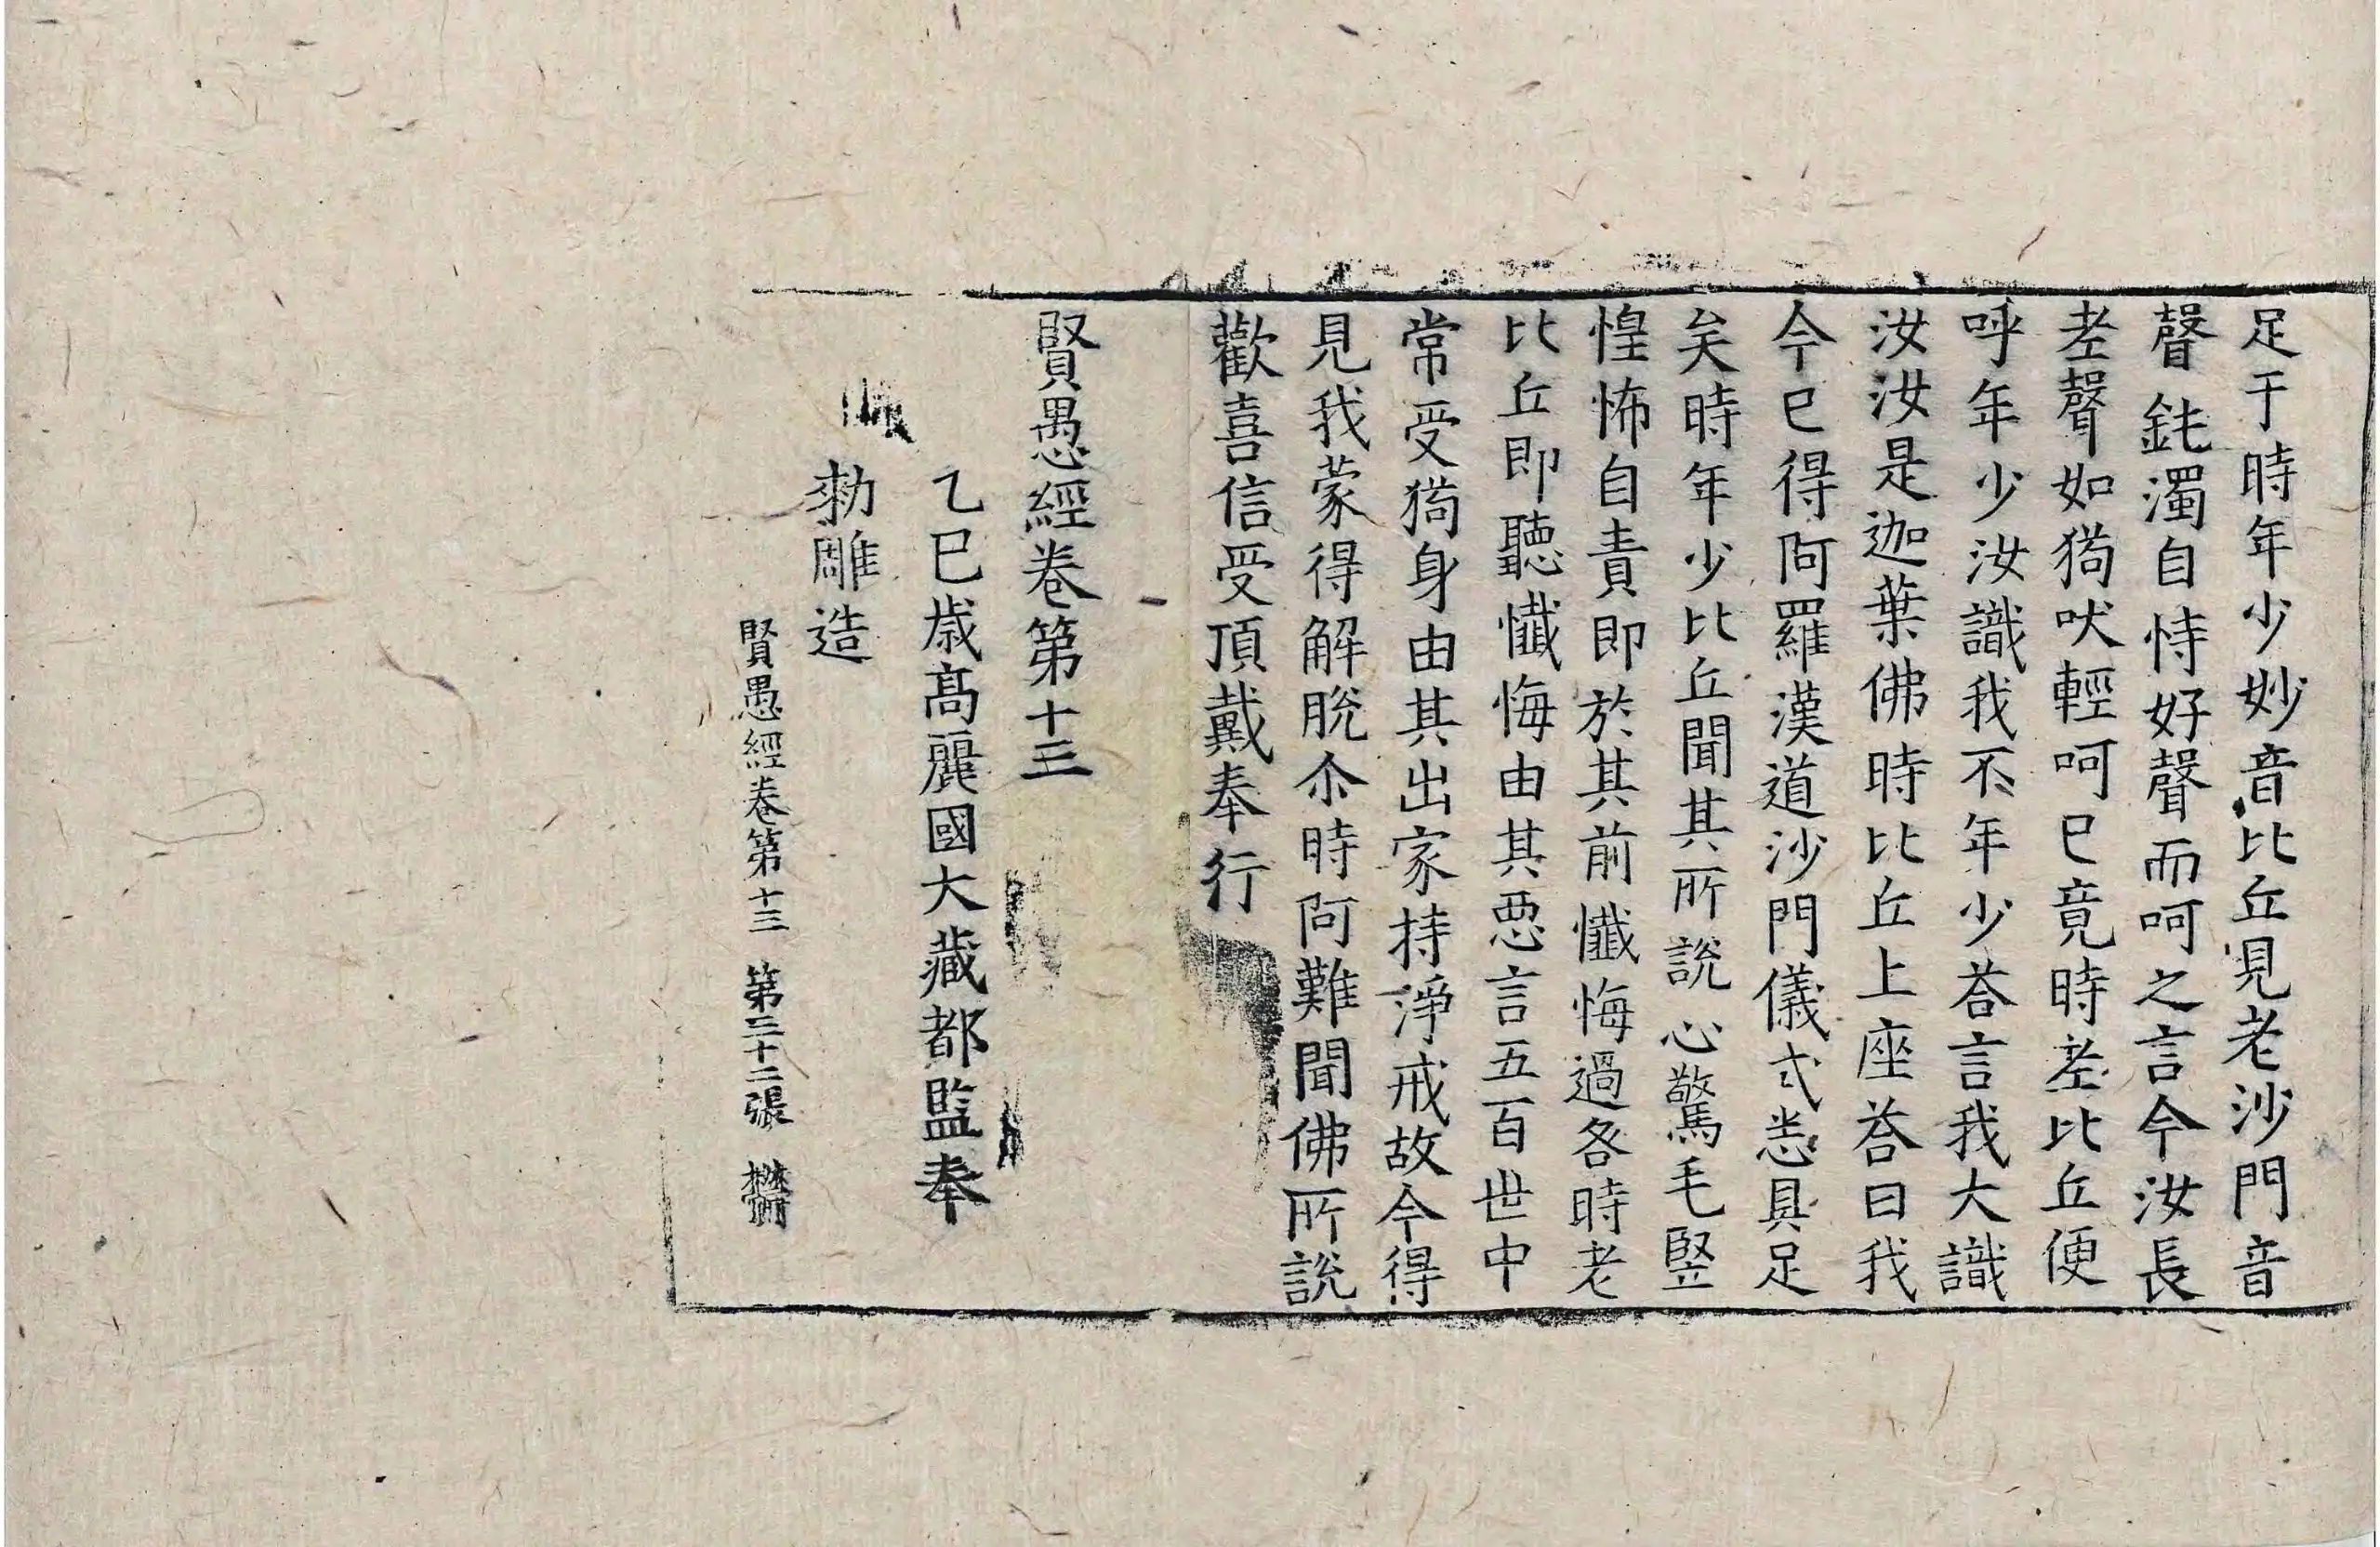 足于時年少妙音比丘見老沙門音
聲鈍濁自恃好聲而呵之言今汝長
老聲如狗吠輕呵已竟時老比丘便
呼年少汝識我不年少荅言我大識
汝汝是迦葉佛時比丘上座荅曰我
今已得阿羅漢道沙門儀式悉具足
矣時年少比丘聞其所說心驚毛竪
惶怖自責即於其前懺悔過咎時老
比丘即聽懺悔由其惡言五百世中
常受狗身由其出家持淨戒故今得
見我蒙得解脫尒時阿難聞佛所說
歡喜信受頂戴奉行
賢愚經卷第十三
乙巳歲高麗國大藏都監奉
勑雕造
賢愚經卷第十三 第三十二張